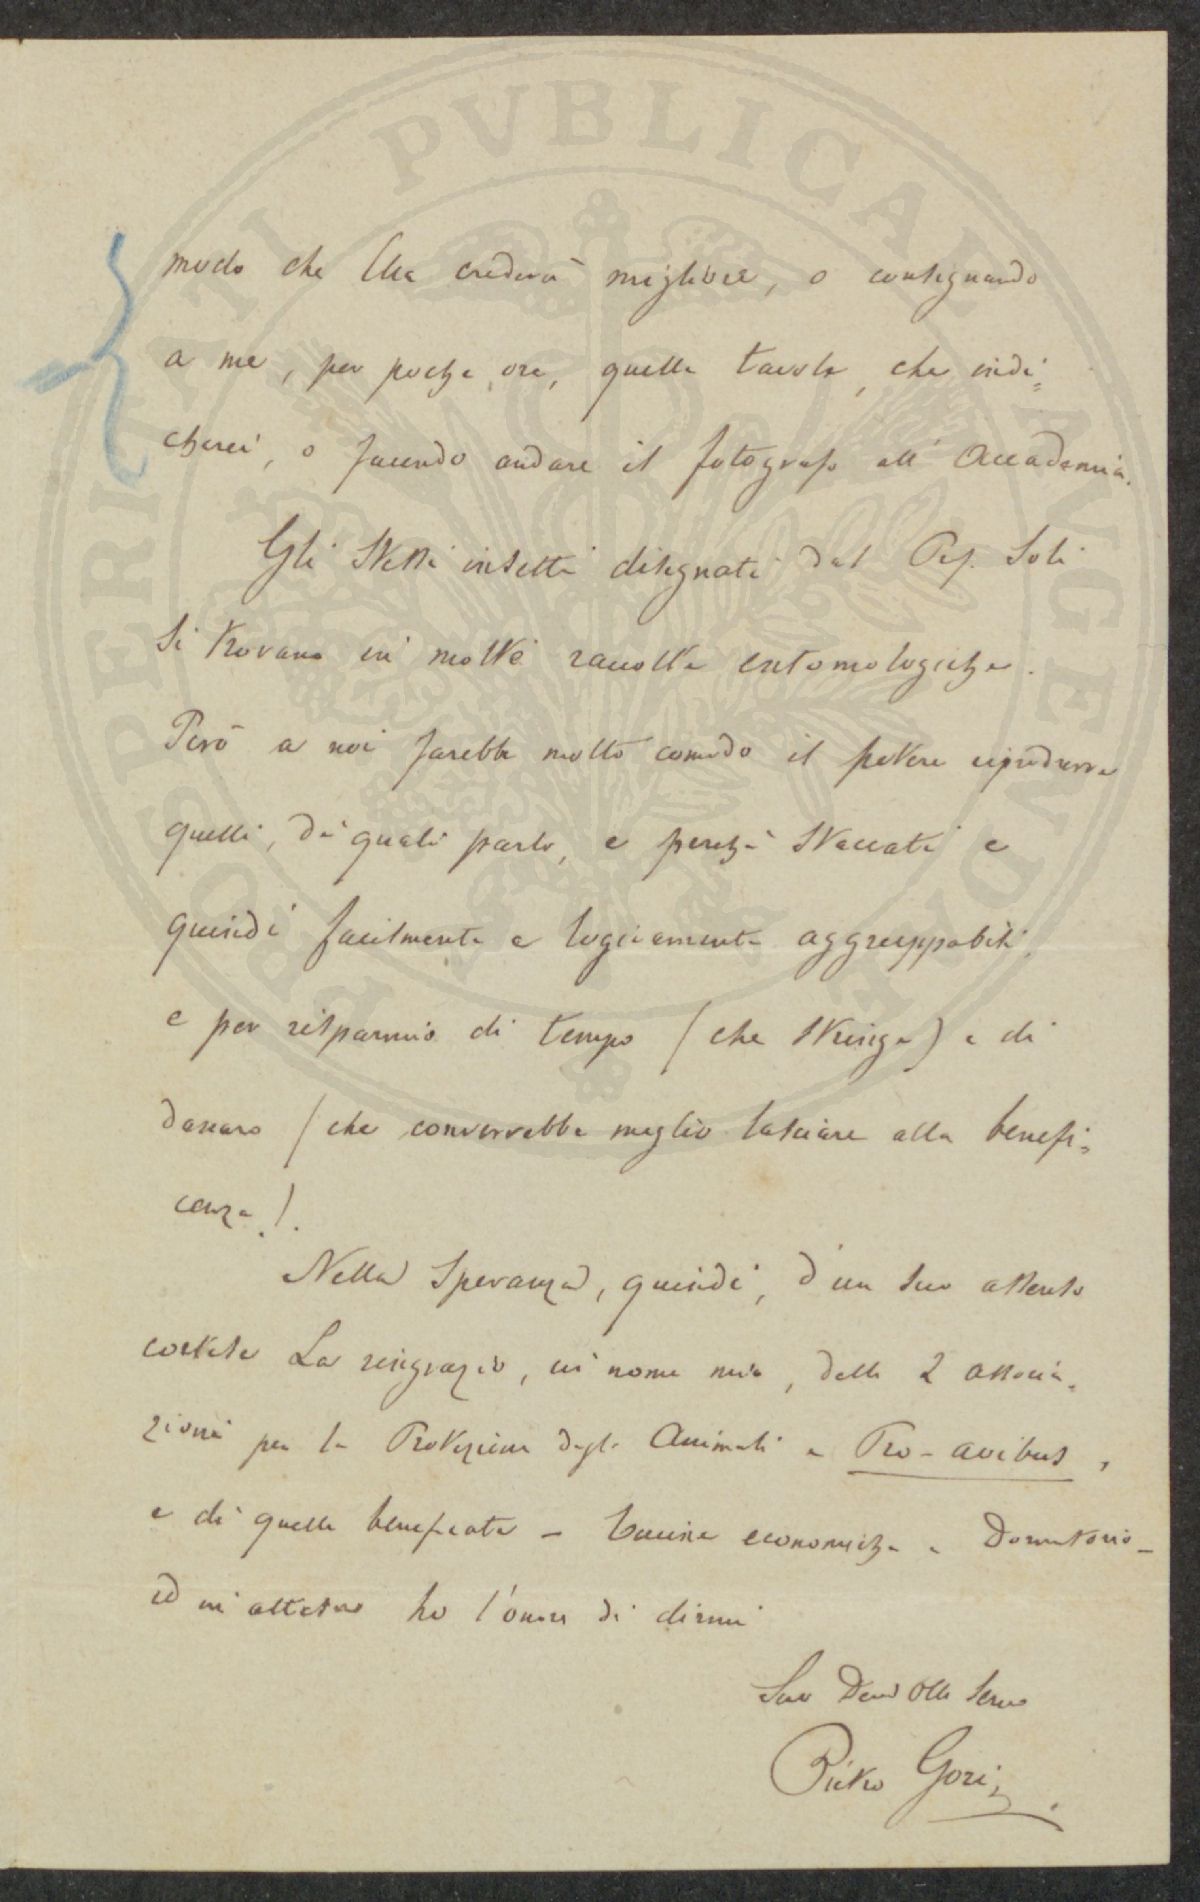 modo che Ella crederà migliore, o consegnando
a me, per poche ore, quelle tavole, che indi=
cherei, o facendo andare il fotografo all'Accademia.
Gli stessi insetti disegnati dal Prof. Soli
si trovano in molte raccolte entomologiche.
Però a noi farebbe molto comodo il potere riprodurre
quelli, de' quali parlo, e perchè staccati e
quindi facilmente e logicamente aggruppabili
e per risparmio di tempo (che stringe) e di
danaro (che converrebbe meglio lasciare alla benefi=
cenza!).
Nella speranza, quindi, d'un suo assenso
cortese La ringrazio, in nome mio, delle 2 associa=
zioni per la Protezione degli Animali e Pro-avibus,
e di quelle beneficate – Cucine economiche e Dormitorio –
ed in attesa ho l'onore di dirmi
Suo Dev Obb servo
Pietro Gori
PROSPERITATI PVBLICAE AVGENDAE